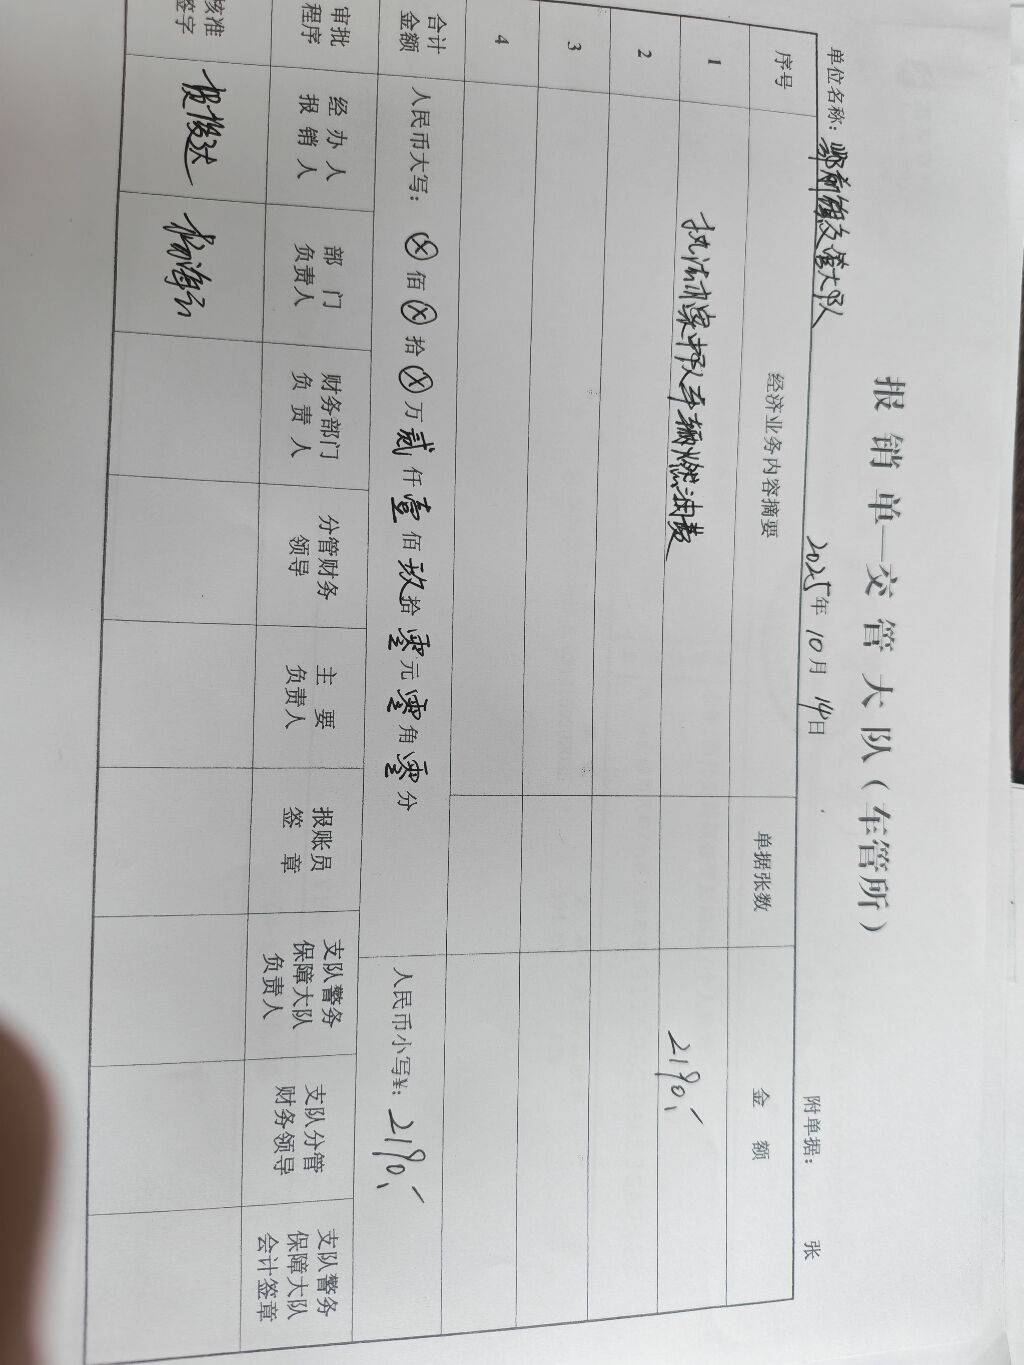 报销单—交管大队（车管所）
单位名称：鄂前旗交管大队 2025年10月14日 附单据： 张
序号 经济业务内容摘要 单据张数 金额
1 执法办案中队车辆燃油费 2190.-
2
3
4
合计金额 人民币大写：ⓧ佰ⓧ拾ⓧ万贰仟壹佰玖拾零元零角零分 人民币小写¥：2190.-
审批程序 经办人报销人 部门负责人 财务部门负责人 分管财务领导 主要负责人 报账员签章 支队警务保障大队负责人 支队分管财务领导 支队警务保障大队会计签章
核准签字